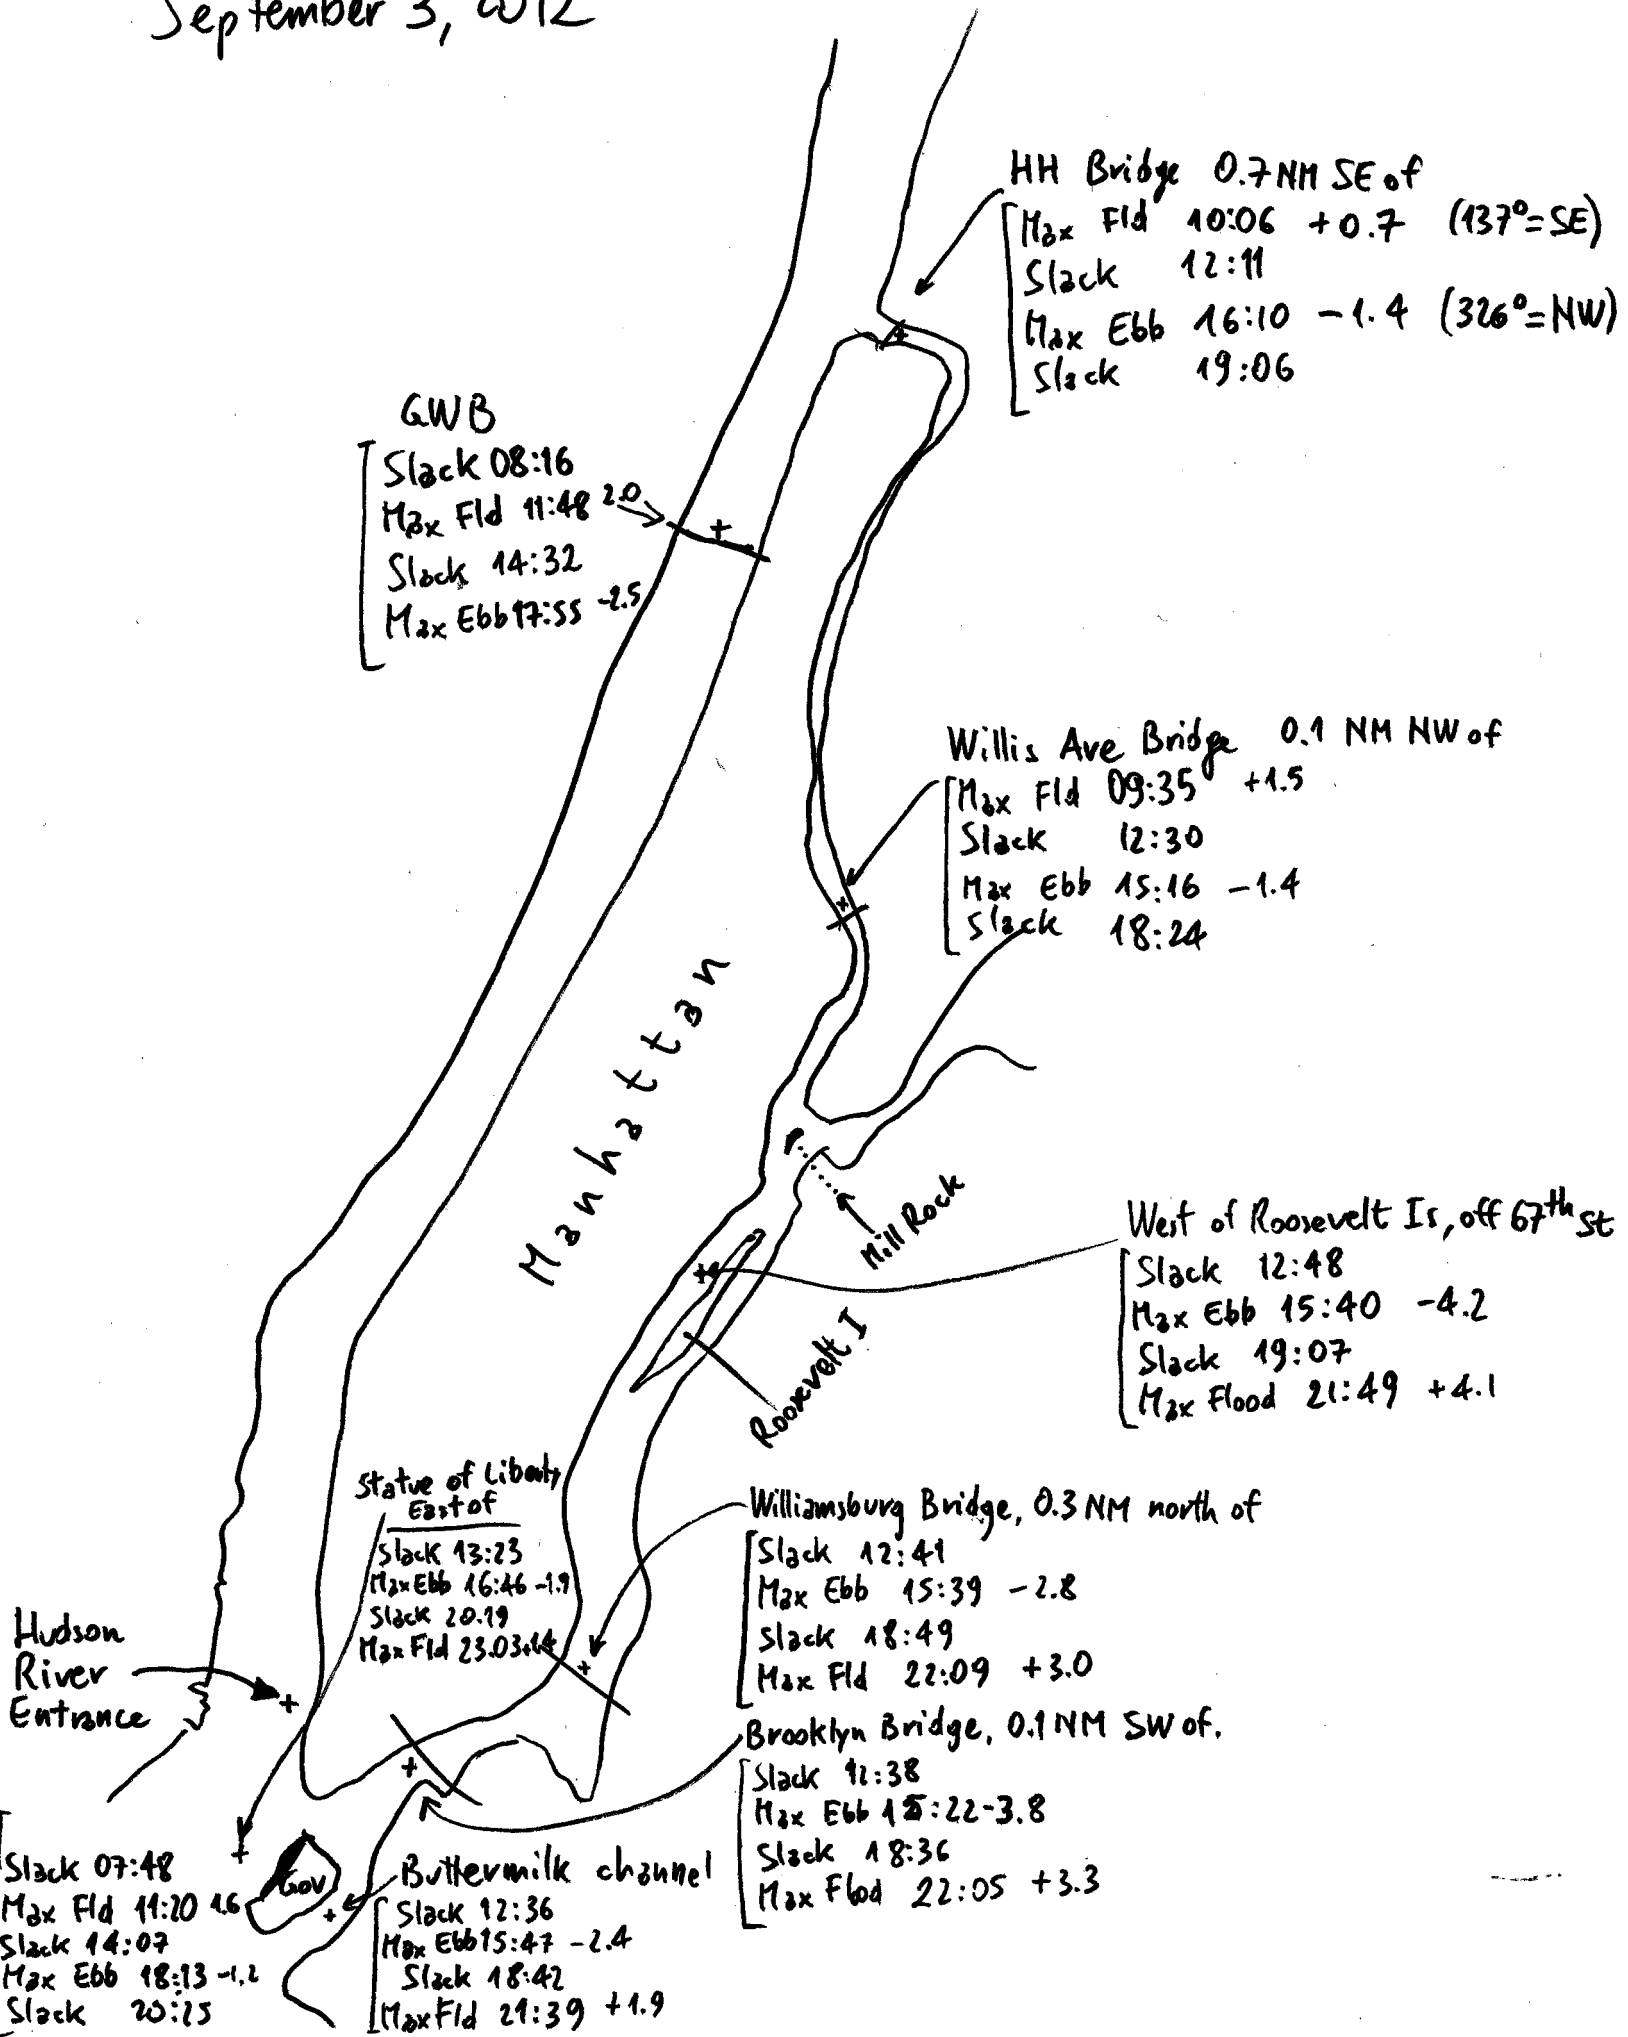 September 3, 2012
HH Bridge 0.7 NM SE of
Max Fld 10:06 +0.7 (137°=SE)
Slack 12:11
Max Ebb 16:10 -1.4 (326°=NW)
Slack 19:06
GWB
Slack 08:16
Max Fld 11:48 2.0
Slack 14:32
Max Ebb 17:55 -2.5
Willis Ave Bridge 0.1 NM NW of
Max Fld 09:35 +1.5
Slack 12:30
Max Ebb 15:16 -1.4
Slack 18:24
Manhattan
Mill Rock
West of Roosevelt Is, off 67th St
Slack 12:48
Max Ebb 15:40 -4.2
Slack 19:07
Max Flood 21:49 +4.1
Roosevelt I
Statue of Liberty
East of
Slack 13:23
Max Ebb 16:46 -1.9
Slack 20.19
Max Fld 23.03 +1.4
Williamsburg Bridge, 0.3 NM north of
Slack 12:41
Max Ebb 15:39 -2.8
Slack 18:49
Max Fld 22:09 +3.0
Hudson
River
Entrance
Brooklyn Bridge, 0.1 NM SW of.
Slack 12:38
Max Ebb 15:22 -3.8
Slack 18:36
Max Flood 22:05 +3.3
Gov
Slack 07:48
Max Fld 11:20 1.6
Slack 14:07
Max Ebb 18:13 -1.2
Slack 20:25
Buttermilk channel
Slack 12:36
Max Ebb 15:47 -2.4
Slack 18:42
Max Fld 21:39 +1.9